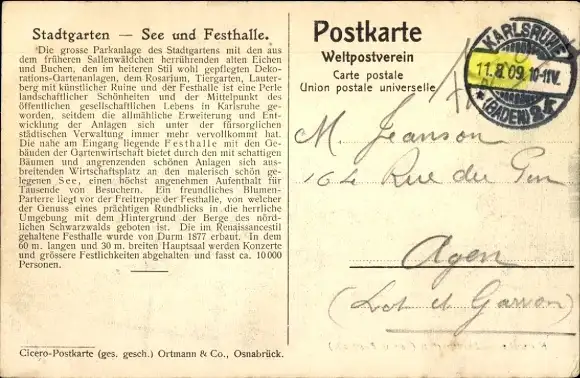 Stadtgarten — See und Festhalle.
Die grosse Parkanlage des Stadtgartens mit den aus
dem früheren Sallenwäldchen herrührenden alten Eichen
und Buchen, den im heiteren Stil wohl gepflegten Deko-
rations-Gartenanlagen, dem Rosarium, Tiergarten, Lauter-
berg mit künstlicher Ruine und der Festhalle ist eine Perle
landschaftlicher Schönheiten und der Mittelpunkt des
öffentlichen gesellschaftlichen Lebens in Karlsruhe ge-
worden, seitdem die allmähliche Erweiterung und Ent-
wicklung der Anlagen sich unter der fürsorglichen
städtischen Verwaltung immer mehr vervollkommt hat.
Die nahe am Eingang liegende Festhalle mit den Ge-
bäuden der Gartenwirtschaft bietet durch den mit schattigen
Bäumen und angrenzenden schönen Anlagen sich aus-
breitenden Wirtschaftsplatz an den malerisch schön ge-
legenen See, einen höchst angenehmen Aufenthalt für
Tausende von Besuchern. Ein freundliches Blumen-
Parterre liegt vor der Freitreppe der Festhalle, von welcher
der Genuss eines prächtigen Rundblicks in die herrliche
Umgebung mit dem Hintergrund der Berge des nörd-
lichen Schwarzwalds geboten ist. Die im Renaissancestil
gehaltene Festhalle wurde von Durm 1877 erbaut. In dem
60 m. langen und 30 m. breiten Hauptsaal werden Konzerte
und grössere Festlichkeiten abgehalten und fasst ca. 10000
Personen.
Cicero-Postkarte (ges. gesch.) Ortmann & Co., Osnabrück.
Postkarte
Weltpostverein
Carte postale
Union postale universelle
KARLSRUHE
11.8.09. 10-11V.
* (BADEN) 2
M. Jeanson
164 Rue du Pin
Agen
(Lot et Garonon)